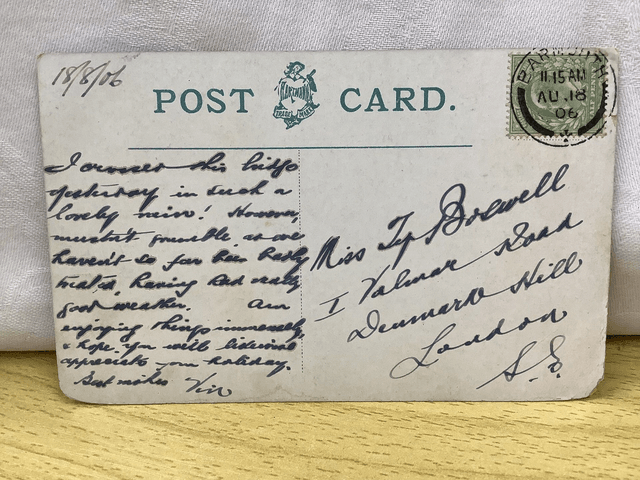 18/8/06
POST CARD.
BARMOUTH
11.15 AM
AU.18
06
I crossed this bridge
yesterday in such a
lovely rain! However,
mustn't grumble, as we
haven't so far been badly
treated, having had really
good weather. Am
enjoying things immensely
& hope you will likewise
appreciate your holiday.
Best wishes Vin
Miss Ty Boswell
1 Valmar Road
Denmark Hill
London
S.E.